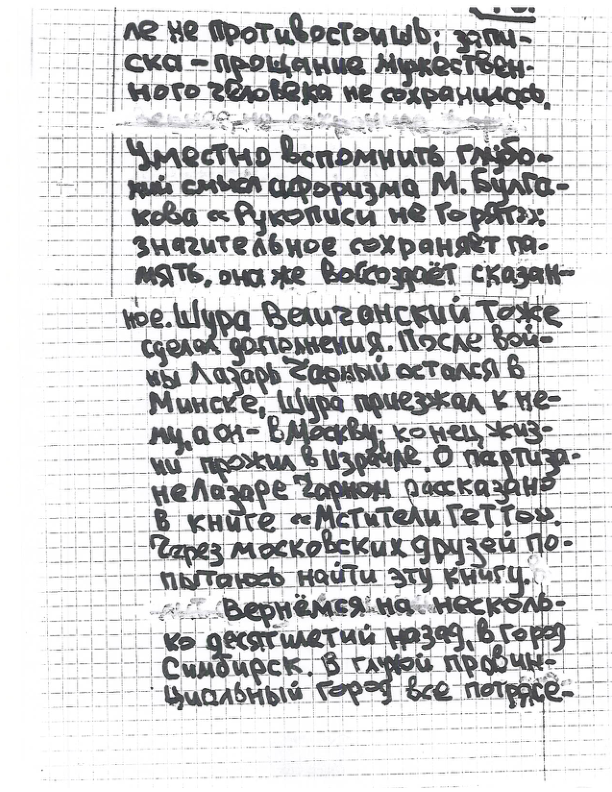 ле не противостоишь; запи-
ска - прощание мужествен-
ного человека не сохранилась.
Уместно вспомнить глубо-
кий смысл афоризма М. Булга-
кова «Рукописи не горят»:
значительное сохраняет па-
мять, она же воссоздаёт сказан-
ное. Шура Величанский тоже
сделал дополнения. После вой-
ны Лазарь Чарный остался в
Минске, Шура приезжал к не-
му, а он - в Москву; конец жиз-
ни прожил в Израиле. О партиза-
не Лазаре Чарном рассказано
в книге «Мстители Гетто».
Через московских друзей по-
пытаюсь найти эту книгу.
Вернёмся на несколь-
ко десятилетий назад, в город
Симбирск. В глухой провин-
циальный город все потрясе-